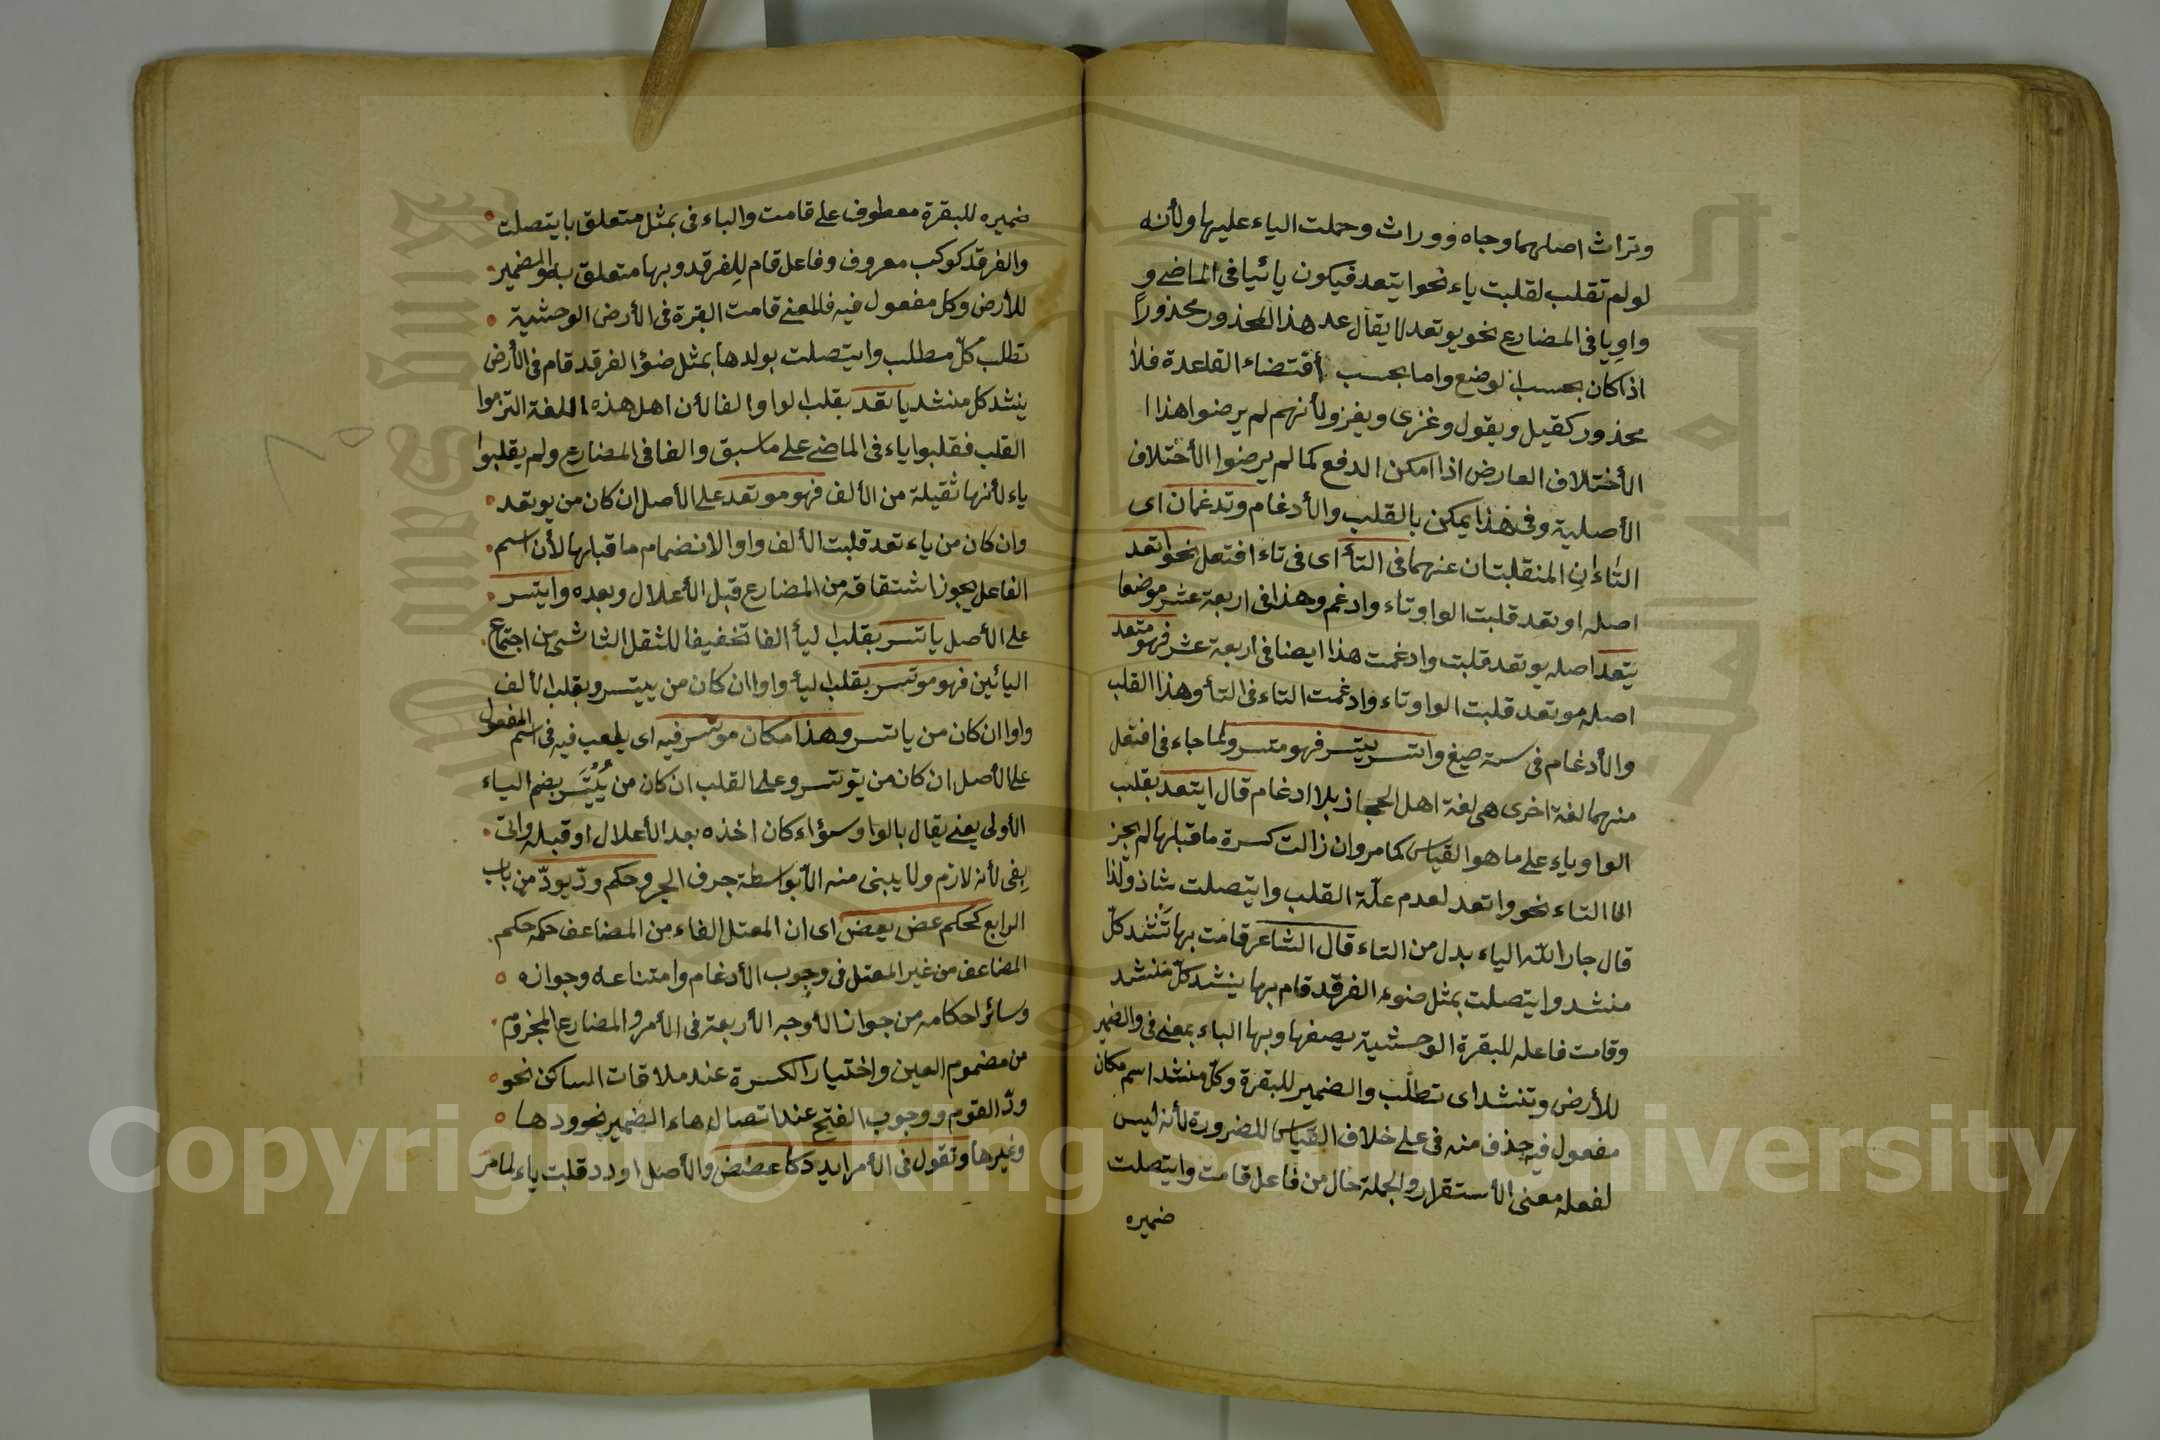 وتراث اصلهما وجاه ووراث وحملت الياء عليها ولأنه
لو لم تقلب لقلبت ياء نحو ايتعد فيكون يائيا فى الماضى و
واويا فى المضارع نحو يوتعد لا يقال عد هذا المحذور محذورا
اذا كان بحسب الوضع واما بحسب أقتضاء القاعدة فلا
محذور كقيل ويقول وغزى ويغزو لأنهم لم يرضوا هذا ا
الأختلاف العارض اذا امكن الدفع كما لم يرضوا الأختلاف
الأصلية وفى هذا يمكن بالقلب والأدغام وتدغمان اى
التاءان المنقلبتان عنهما فى التأ اى فى تاء افتعل نحو اتعد
اصله اوتعد قلبت الواو تاء وادغم وهذا فى اربعة عشر موضعا
يتعد اصله يوتعد قلبت وادغمت هذا ايضا فى اربعة عشر فهو متعد
اصله موتعد قلبت الواو تاء وادغمت التاء فى التأ وهذا القلب
والأدغام فى ستة صيغ واتسر يتسر فهو متسر ولما جاء فى افتعل
منهما لغة اخرى هى لغة اهل الحجاز بلا ادغام قال ايتعد بقلب
الواو ياء على ما هو القياس كما مر وان زالت كسرة ما قبلها لم يجز
الا التاء نحو واتعد لعدم علّة القلب وايتصلت شاذ ولذا
قال جار الله الياء بدل من التاء قال الشاعر قامت بها تنشد كلّ
منشد وايتصلت بمثل ضوء الفرقد قام بها ينشد كلّ منشد
وقامت فاعله للبقرة الوحشية يصفها وبها الباء بمعنى فى والضمير
للأرض وتنشد اى تطلب والضمير للبقرة وكلّ منشد اسم مكان
مفعول فيه حذف منه فى على خلاف القياس للضرورة لأنه ليس
لفعله معنى الأستقرار والجملة حال من فاعل قامت وايتصلت
ضميره
ضميره للبقرة معطوف على قامت والباء فى بمثل متعلق بايتصلت
والفرقد كوكب معروف وفاعل قام للفرقد وبها متعلق به والضمير
للأرض وكل مفعول فيه فالمعنى قامت البقرة فى الأرض الوحشية
تطلب كلّ مطلب وايتصلت بولدها بمثل ضوٴ الفرقد قام فى الأرض
ينشد كل منشد ياتعد بقلب الواو الفا لأن اهل هذه اللغة التزموا
القلب فقلبوا ياء فى الماضى على ما سبق والفا فى المضارع ولم يقلبوا
ياء لأنها ثقيلة من الألف فهو موتعد على الأصل ان كان من يوتعد
وان كان من ياء تعد قلبت الألف واوا لانضمام ما قبلها لأن اسم
الفاعل يجوز اشتقاقه من المضارع قبل الأعلال وبعده وايتسر
على الأصل ياتسر بقلب اليأ الفا تخفيفا للثقل الناشى من اجتماع
اليائين فهو موتسر بقلب اليأ واوا ان كان من ييتسر وبقلب الألف
واوا ان كان من ياتسر وهذا مكان موتسر فيه اى يلعب فيه فى اسم المفعول
على الأصل ان كان من يوتسر وعلى القلب ان كان من يُيْتَسَر بضم الياء
الأولى يعنى يقال بالواو سوٴاء كان اخذه بعد الأعلال او قبله واتى
بفى لأنه لازم ولا يبنى منه الأبواسطة حرف الجر وحكم ودّ يودّ من باب
الرابع كحكم عض يعض اى ان المعتل الفاء من المضاعف حكمه حكم
المضاعف من غير المعتل فى وجوب الأدغام وامتناعه وجوازه
وسائر احكامه من جواز الأوجه الأربعة فى الأمر والمضارع المجزوم
من مضموم العين واختيار الكسرة عند ملاقات الساكن نحو
ودّ القوم ووجوب الفتح عند اتصال هاء الضمير نحو ودها
وغيرها وتقول فى الأمر ايدد كاعضض والأصل اودد قلبت ياء لما مر
Copyright © King Saud University